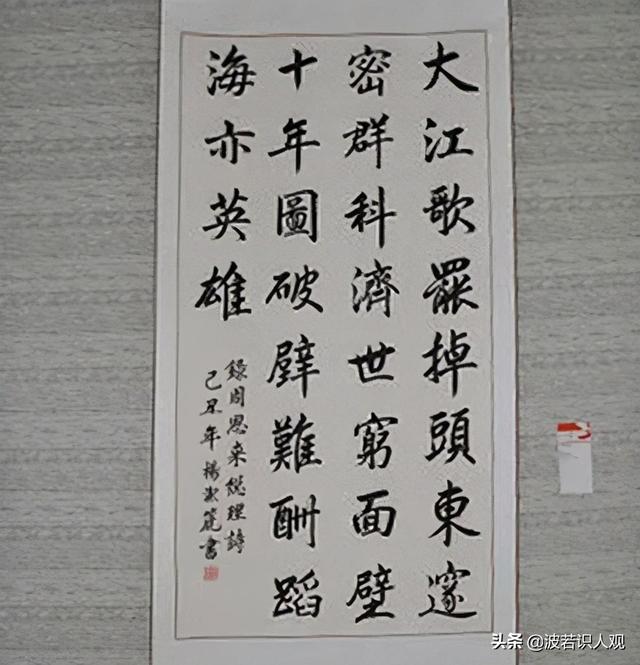 大江歌罷掉頭東邃
密群科濟世窮面壁
十年圖破壁難酬蹈
海亦英雄
錄周恩来總理詩
己丑年楊書
头条 @波若识人观